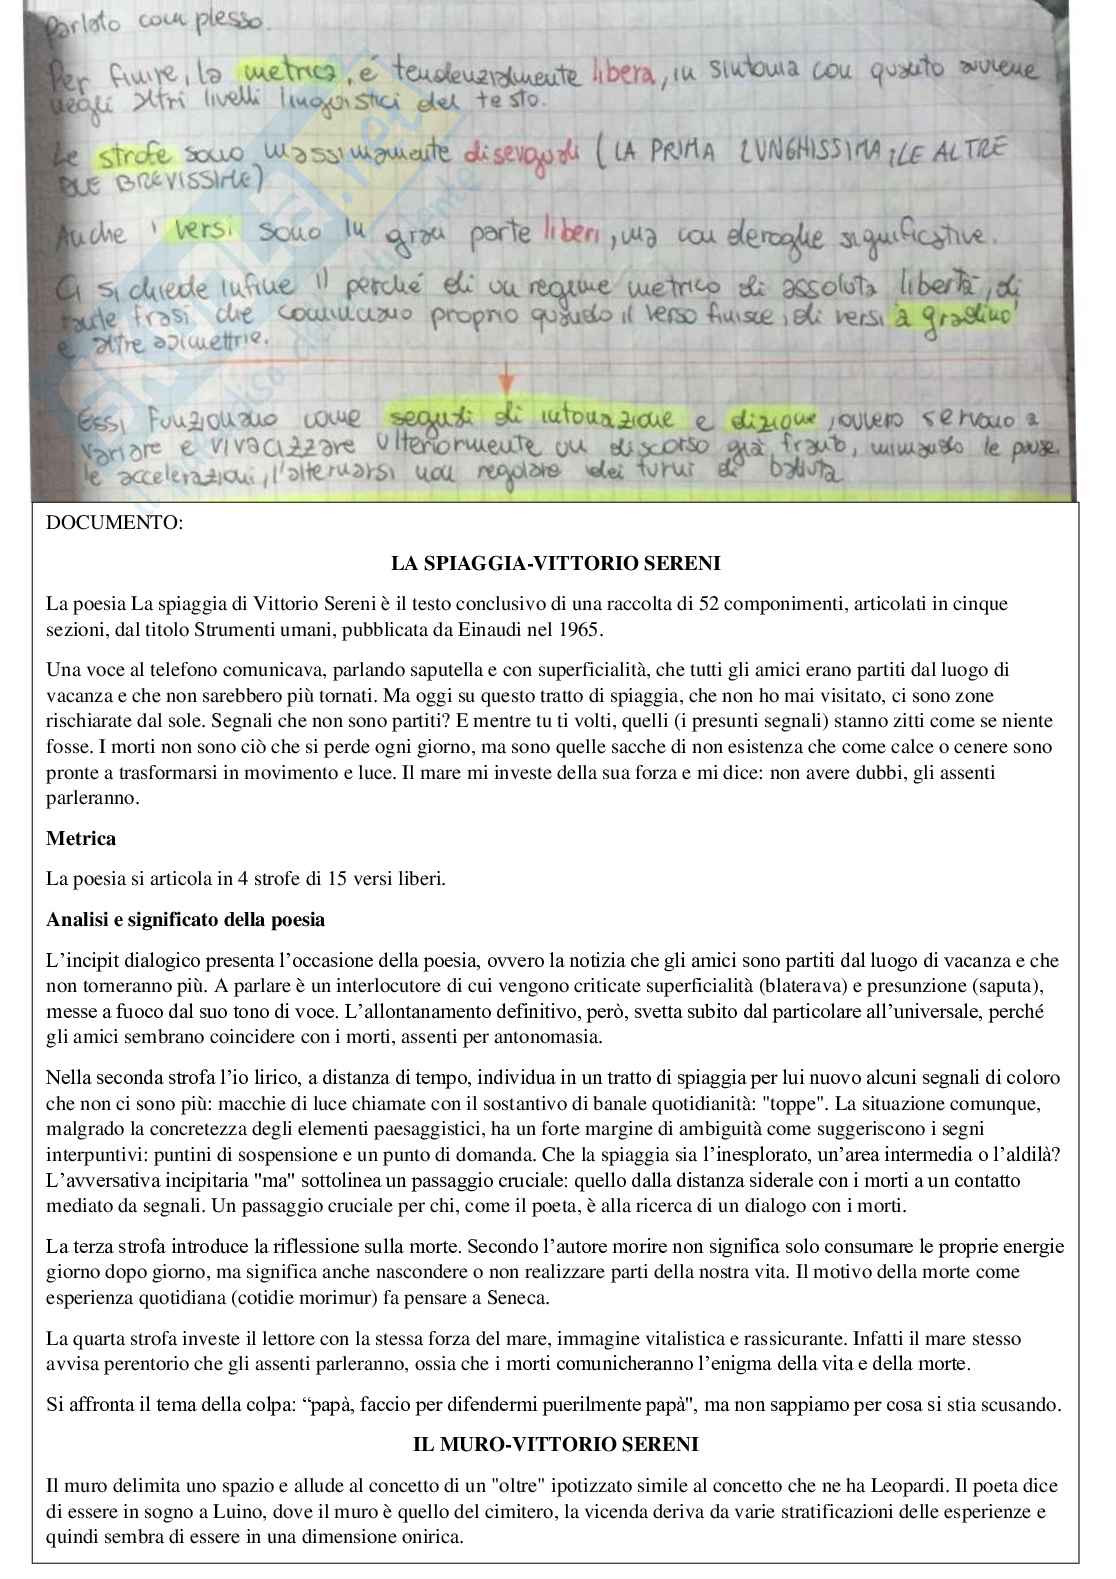 Parlato complesso.
Per finire, la metrica, é tendenzialmente libera, in sintonia con quanto avviene
negli altri livelli linguistici del testo.
Le strofe sono massimamente diseguali (LA PRIMA LUNGHISSIMA, LE ALTRE
DUE BREVISSIME)
Anche i versi sono in gran parte liberi, ma con deroghe significative.
Ci si chiede infine il perché di un regime metrico di assoluta libertà, di
tante frasi che cominciano proprio quando il verso finisce, di versi "a gradino"
e altre asimettrie.
Essi funzionano come segnali di intonazione e dizione, ovvero servono a
variare e vivacizzare ulteriormente un discorso già franto, mimando le pause,
le accelerazioni, l'alternarsi non regolare dei turni di battuta
DOCUMENTO:
LA SPIAGGIA-VITTORIO SERENI
La poesia La spiaggia di Vittorio Sereni è il testo conclusivo di una raccolta di 52 componimenti, articolati in cinque
sezioni, dal titolo Strumenti umani, pubblicata da Einaudi nel 1965.
Una voce al telefono comunicava, parlando saputella e con superficialità, che tutti gli amici erano partiti dal luogo di
vacanza e che non sarebbero più tornati. Ma oggi su questo tratto di spiaggia, che non ho mai visitato, ci sono zone
rischiarate dal sole. Segnali che non sono partiti? E mentre tu ti volti, quelli (i presunti segnali) stanno zitti come se niente
fosse. I morti non sono ciò che si perde ogni giorno, ma sono quelle sacche di non esistenza che come calce o cenere sono
pronte a trasformarsi in movimento e luce. Il mare mi investe della sua forza e mi dice: non avere dubbi, gli assenti
parleranno.
Metrica
La poesia si articola in 4 strofe di 15 versi liberi.
Analisi e significato della poesia
L'incipit dialogico presenta l'occasione della poesia, ovvero la notizia che gli amici sono partiti dal luogo di vacanza e che
non torneranno più. A parlare è un interlocutore di cui vengono criticate superficialità (blaterava) e presunzione (saputa),
messe a fuoco dal suo tono di voce. L'allontanamento definitivo, però, svetta subito dal particolare all'universale, perché
gli amici sembrano coincidere con i morti, assenti per antonomasia.
Nella seconda strofa l'io lirico, a distanza di tempo, individua in un tratto di spiaggia per lui nuovo alcuni segnali di coloro
che non ci sono più: macchie di luce chiamate con il sostantivo di banale quotidianità: "toppe". La situazione comunque,
malgrado la concretezza degli elementi paesaggistici, ha un forte margine di ambiguità come suggeriscono i segni
interpuntivi: puntini di sospensione e un punto di domanda. Che la spiaggia sia l'inesplorato, un'area intermedia o l'aldilà?
L'avversativa incipitaria "ma" sottolinea un passaggio cruciale: quello dalla distanza siderale con i morti a un contatto
mediato da segnali. Un passaggio cruciale per chi, come il poeta, è alla ricerca di un dialogo con i morti.
La terza strofa introduce la riflessione sulla morte. Secondo l'autore morire non significa solo consumare le proprie energie
giorno dopo giorno, ma significa anche nascondere o non realizzare parti della nostra vita. Il motivo della morte come
esperienza quotidiana (cotidie morimur) fa pensare a Seneca.
La quarta strofa investe il lettore con la stessa forza del mare, immagine vitalistica e rassicurante. Infatti il mare stesso
avvisa perentorio che gli assenti parleranno, ossia che i morti comunicheranno l'enigma della vita e della morte.
Si affronta il tema della colpa: "papà, faccio per difendermi puerilmente papà", ma non sappiamo per cosa si stia scusando.
IL MURO-VITTORIO SERENI
Il muro delimita uno spazio e allude al concetto di un "oltre" ipotizzato simile al concetto che ne ha Leopardi. Il poeta dice
di essere in sogno a Luino, dove il muro è quello del cimitero, la vicenda deriva da varie stratificazioni delle esperienze e
quindi sembra di essere in una dimensione onirica.